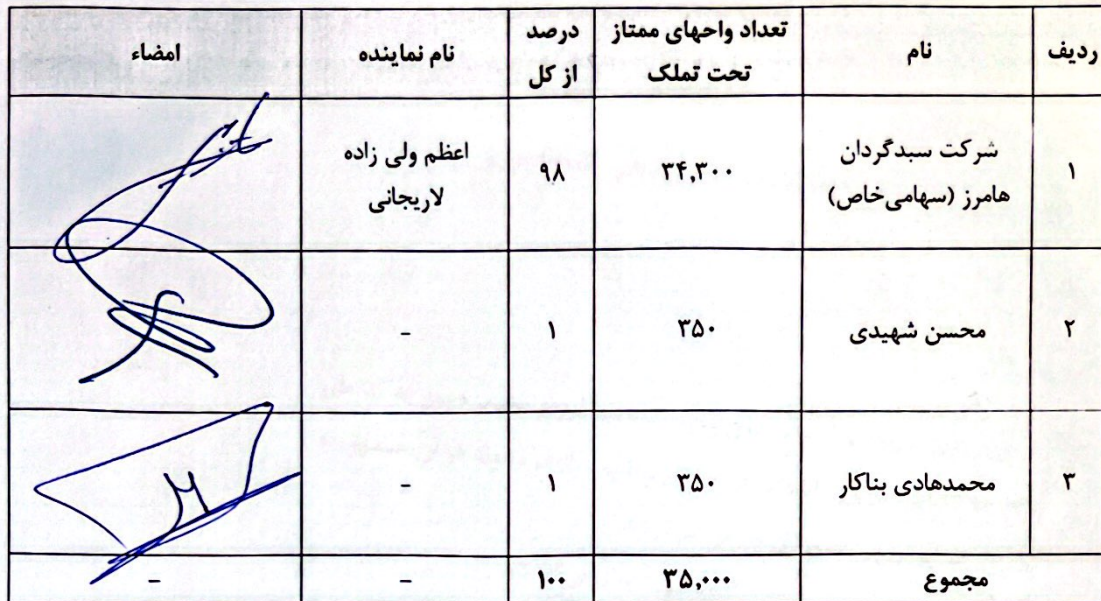 ردیف نام تعداد واحهای ممتاز تحت تملک درصد از کل نام نماینده امضاء
۱ شرکت سبدگردان هامرز (سهامی‌خاص) ۳۴,۳۰۰ ۹۸ اعظم ولی زاده لاریجانی
۲ محسن شهیدی ۳۵۰ ۱ -
۳ محمدهادی بناکار ۳۵۰ ۱ -
مجموع ۳۵,۰۰۰ ۱۰۰ - -